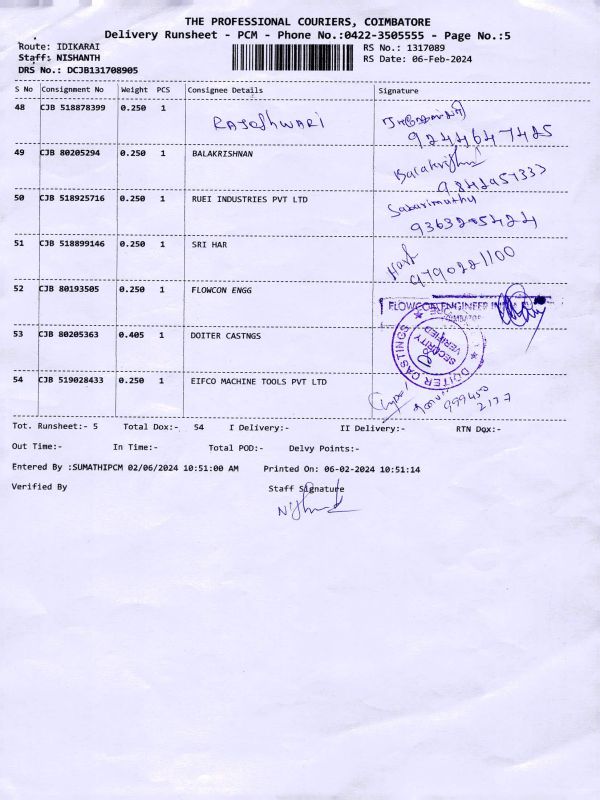 THE PROFESSIONAL COURIERS, COIMBATORE
Delivery Runsheet - PCM - Phone No.:0422-3505555 - Page No.:5
Route: IDIKARAI RS No.: 1317089
Staff: NISHANTH RS Date: 06-Feb-2024
DRS No.: DCJB131708905
S No Consignment No Weight PCS Consignee Details Signature
48 CJB 518878399 0.250 1 RAJeshwari
9244647425
49 CJB 80205294 0.250 1 BALAKRISHNAN Balakrishn
9842951333
50 CJB 518925716 0.250 1 RUEI INDUSTRIES PVT LTD Sabarimuthu
9363285424
51 CJB 518899146 0.250 1 SRI HAR Hari
9790221100
52 CJB 80193505 0.250 1 FLOWCON ENGG FLOWCON ENGINEER
53 CJB 80205363 0.405 1 DOITER CASTNGS DOITER CASTINGS SECURITY VERIFIED
54 CJB 519028433 0.250 1 EIFCO MACHINE TOOLS PVT LTD
999450
2177
Tot. Runsheet:- 5 Total Dox:- 54 I Delivery:- II Delivery:- RTN Dox:-
Out Time:- In Time:- Total POD:- Delvy Points:-
Entered By :SUMATHIPCM 02/06/2024 10:51:00 AM Printed On: 06-02-2024 10:51:14
Verified By Staff Signature